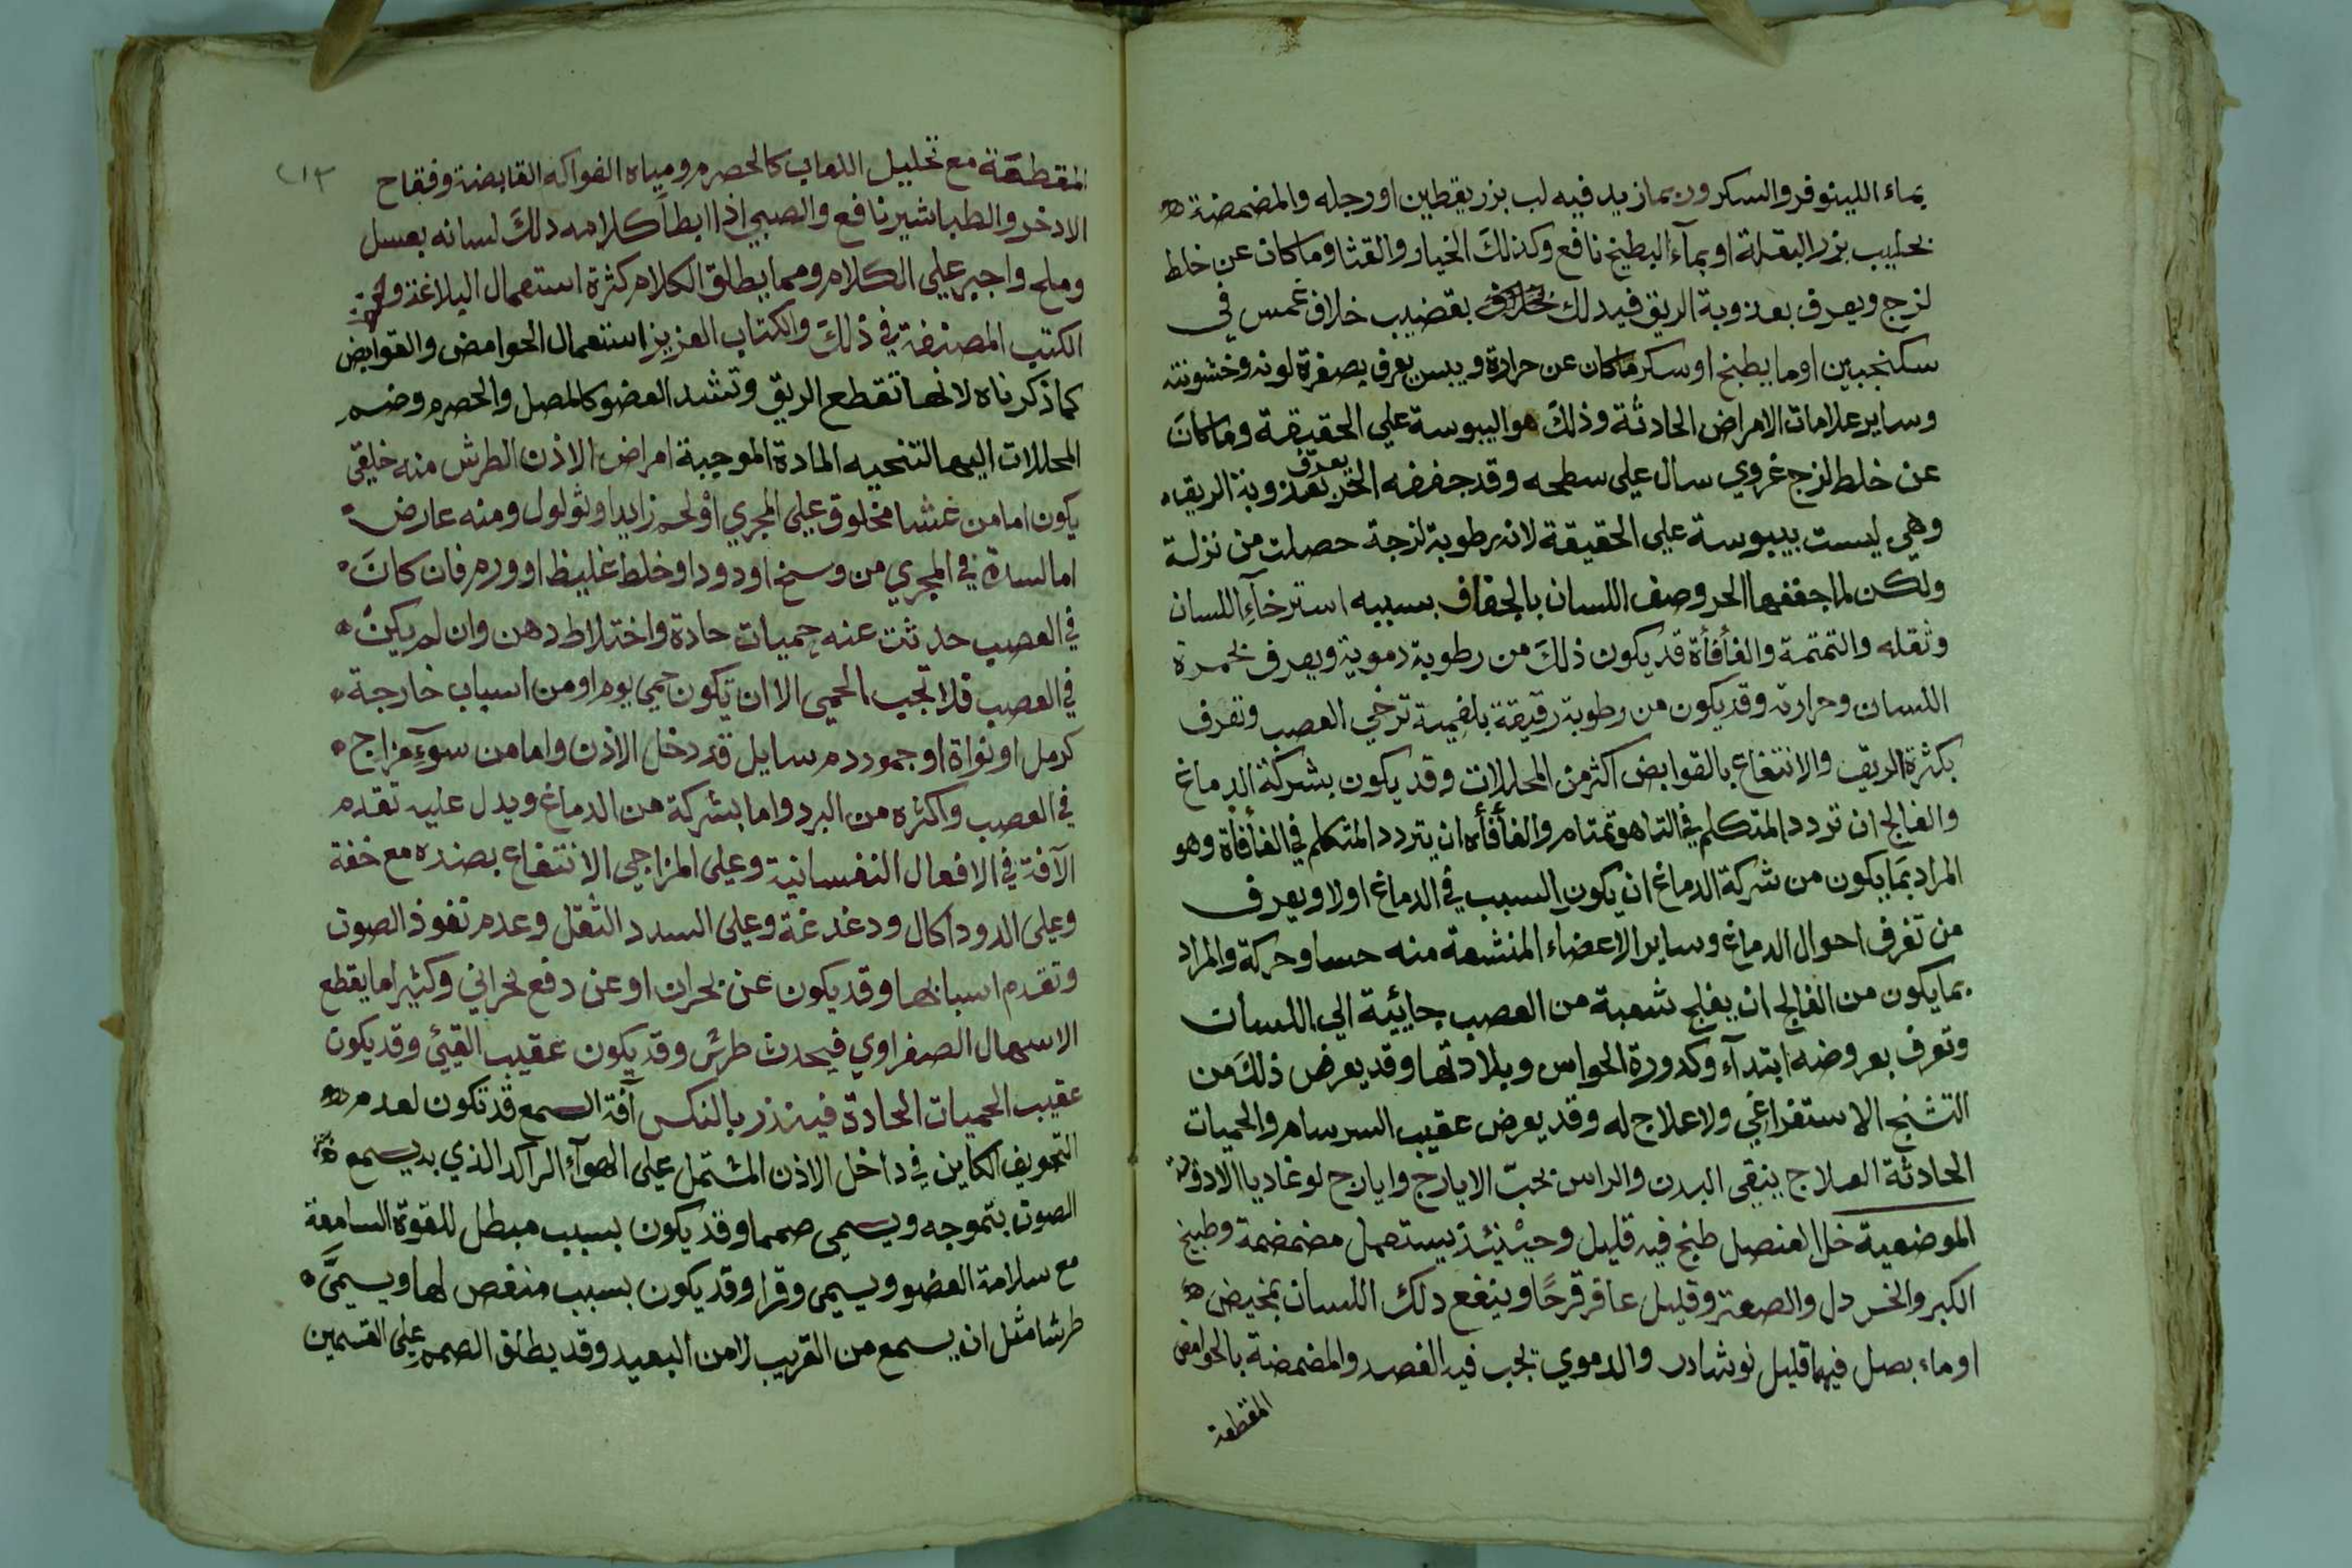 بماء اللينوفر والسكر وربما زيد فيه لب بزر يقطين او رجله والمضمضة
بحليب بزر البقلة او بمآء البطيخ نافع وكذلك الخيار والقثا وما كان عن خلط
لزج ويعرف بعذوبة الريق فيدلك بقضيب خلاف غمس في
سكنجبين او ما بطيخ او سكر ما كان عن حرارة ويبس يعرف بصفرة لونه وخشونته
وساير علامات الامراض الحادثة وذلك هو اليبوسة علي الحقيقة وما كان
عن خلط لزج غروي سال علي سطحه وقد جففه الحر يعرف بعذوبة الريق
وهي ليست بيبوسة علي الحقيقة لانه رطوبة لزجة حصلت من نزلة
ولكن لما جففها الحر وصف اللسان بالجفاف بسببه استرخآء اللسان
وثقله والتمتمة والفأفأة قد يكون ذلك من رطوبة دموية ويعرف بحمرة
اللسان وحرارته وقد يكون من رطوبة رقيقة بلغمية ترخي العصب وتعرف
بكثرة الريق والانتفاع بالقوابض اكثر من المحللات وقد يكون بشركة الدماغ
والفالج ان تردد المتكلم في التا هو تمتام والفأفأه ان يتردد المتكلم في الفأفأة وهو
المراد بما يكون من شركة الدماغ ان يكون السبب في الدماغ اولا ويعرف
من تعرف احوال الدماغ وساير الاعضاء المنشعبة منه حسا وحركة والمراد
بما يكون من الفالج ان يفلج شعبة من العصب جائية الي اللسان
وتعرف بعروضه ابتدآء وكدورة الحواس وبلادتها وقد يعرض ذلك من
التشنج الاستفراغي ولا علاج له وقد يعرض عقيب السرسام والحميات
الحادثة العلاج ينقي البدن والراس بحب الايارج وايارج لوغاديا الادوية
الموضعية خل العنصل طبخ فيه قليل وحينئذ يستعمل مضمضة وطبيخ
الكبر والخردل والصعتر وقليل عاقر قرحا وينفع دلك اللسان بمخيض
او ماء بصل فيهما قليل نوشادر والدموي يجب فيه الفصد والمضمضة بالحوامض
المقطعة
٢١٣
المقطعة مع تحليل اللعاب كالحصرم ومياه الفواكه القابضة وفقاح
الادخر والطباشير نافع والصبي اذا ابطأ كلامه دلك لسانه بعسل
وملح واجبر علي الكلام ومما يطلق الكلام كثرة استعمال البلاغة
الكتب المصنفة في ذلك والكتاب العزيز استعمال الحوامض والقوابض
كما ذكرناه لانها تقطع الريق وتشد العضو كالمصل والحصرم وضم
المحللات اليها لتنحيه المادة الموجبة امراض الاذن الطرش منه خلقي
يكون اما من غشا مخلوق علي المجري او لحم زايد او ثولول ومنه عارض
اما لسدة في المجري من وسخ او دود او خلط غليظ او ورم فان كان
في العصب حدثت عنه حميات حادة واختلاط دهن وان لم يكن
في العصب فلا تجب الحمي الا ان تكون حمي يوم او من اسباب خارجة
كرمل او نواة او جمود دم سايل قد دخل الاذن واما من سوء مزاج
في العصب واكثره من البرد واما بشركة من الدماغ ويدل عليه تقدم
الآفة في الافعال النفسانية وعلى المزاجي الانتفاع بضده مع خفة
وعلى الدود اكال ودغدغة وعلى السدد الثقل وعدم نفوذ الصوت
وتقدم اسبابها وقد يكون عن بحران او عن دفع بحراني وكثيرا ما يقطع
الاسهال الصفراوي فيحدث طرش وقد يكون عقيب القيئ وقد يكون
عقيب الحميات الحادة فينذر بالنكس آفة السمع قد تكون لعدم
التجويف الكاين في داخل الاذن المشتمل على الهوآء الراكد الذي به يسمع
الصوت بتموجه ويسمى صمما وقد يكون بسبب مبطل للقوة السامعة
مع سلامة العضو ويسمى وقرا وقد يكون بسبب منغص لها ويسمى
طرشا مثل ان يسمع من القريب لا من البعيد وقد يطلق الصمم على القسمين